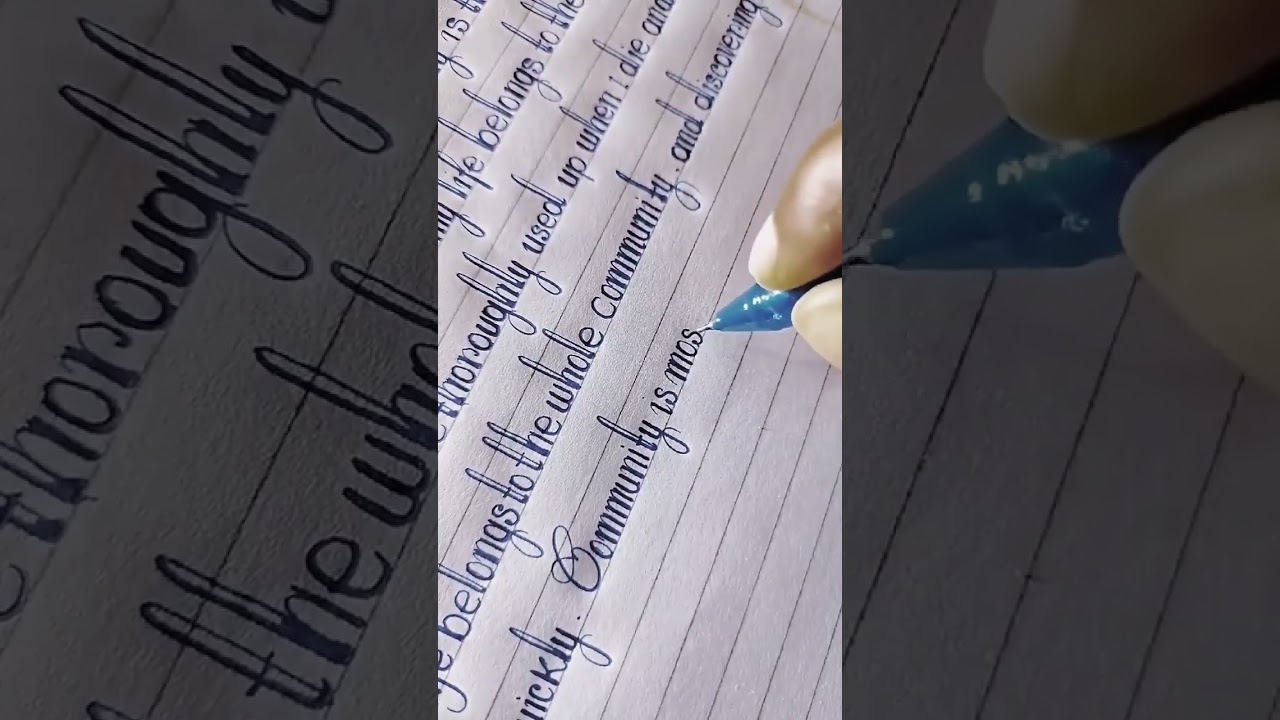 is
life belongs to the
thoroughly used up when i die and
life belongs to the whole community. and discovering
uickly. Community is mos